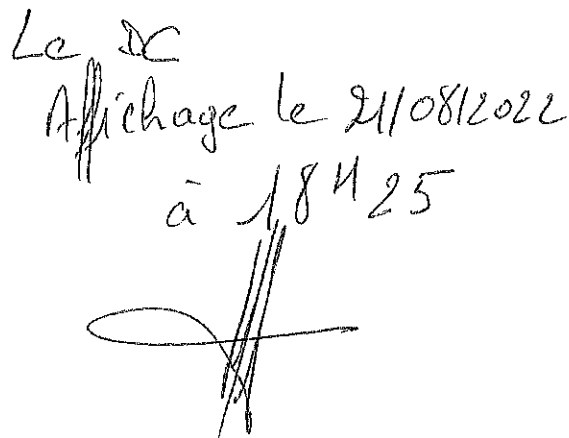 Le DC
Affichage le 21/08/2022
à 18H25